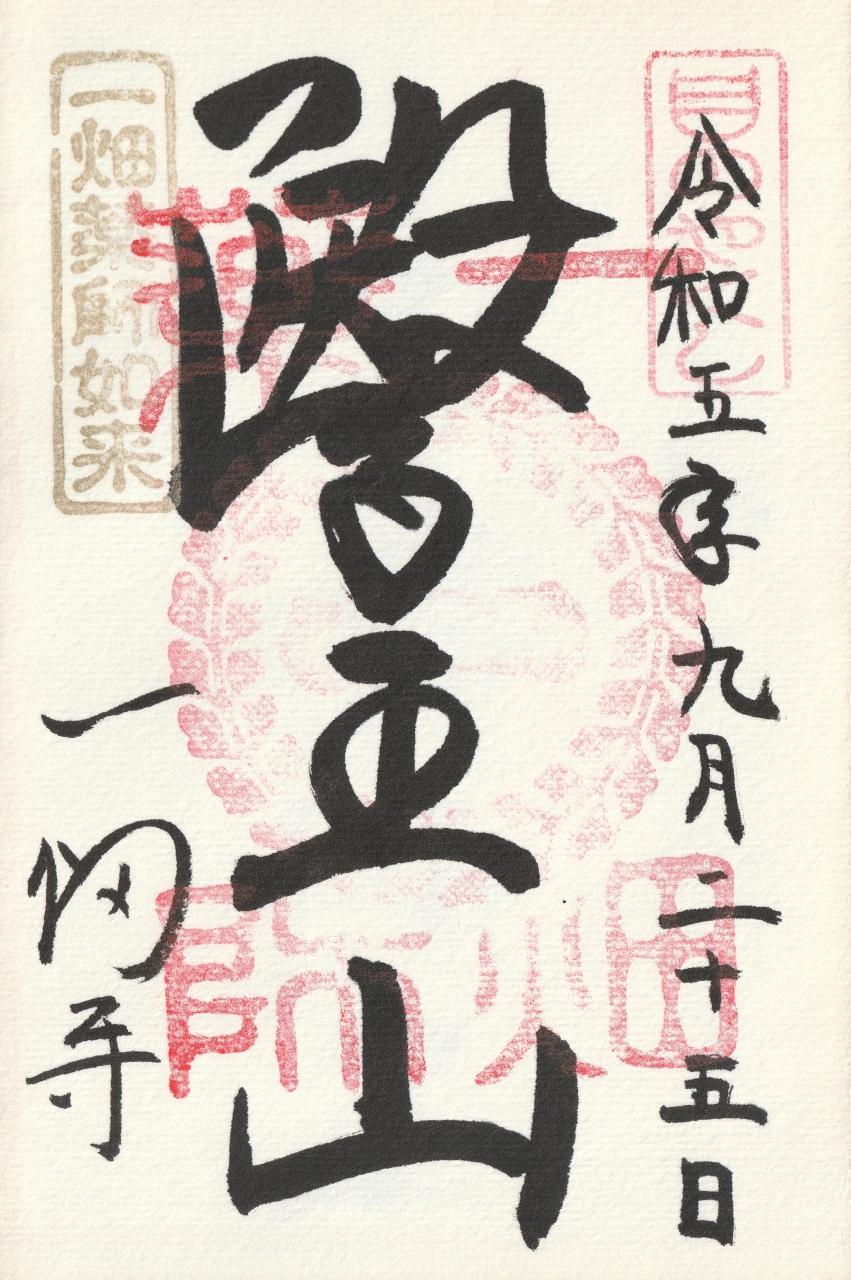 令和五年九月二十五日
醫王山
一畑寺
一畑
薬師
一畑薬師如来